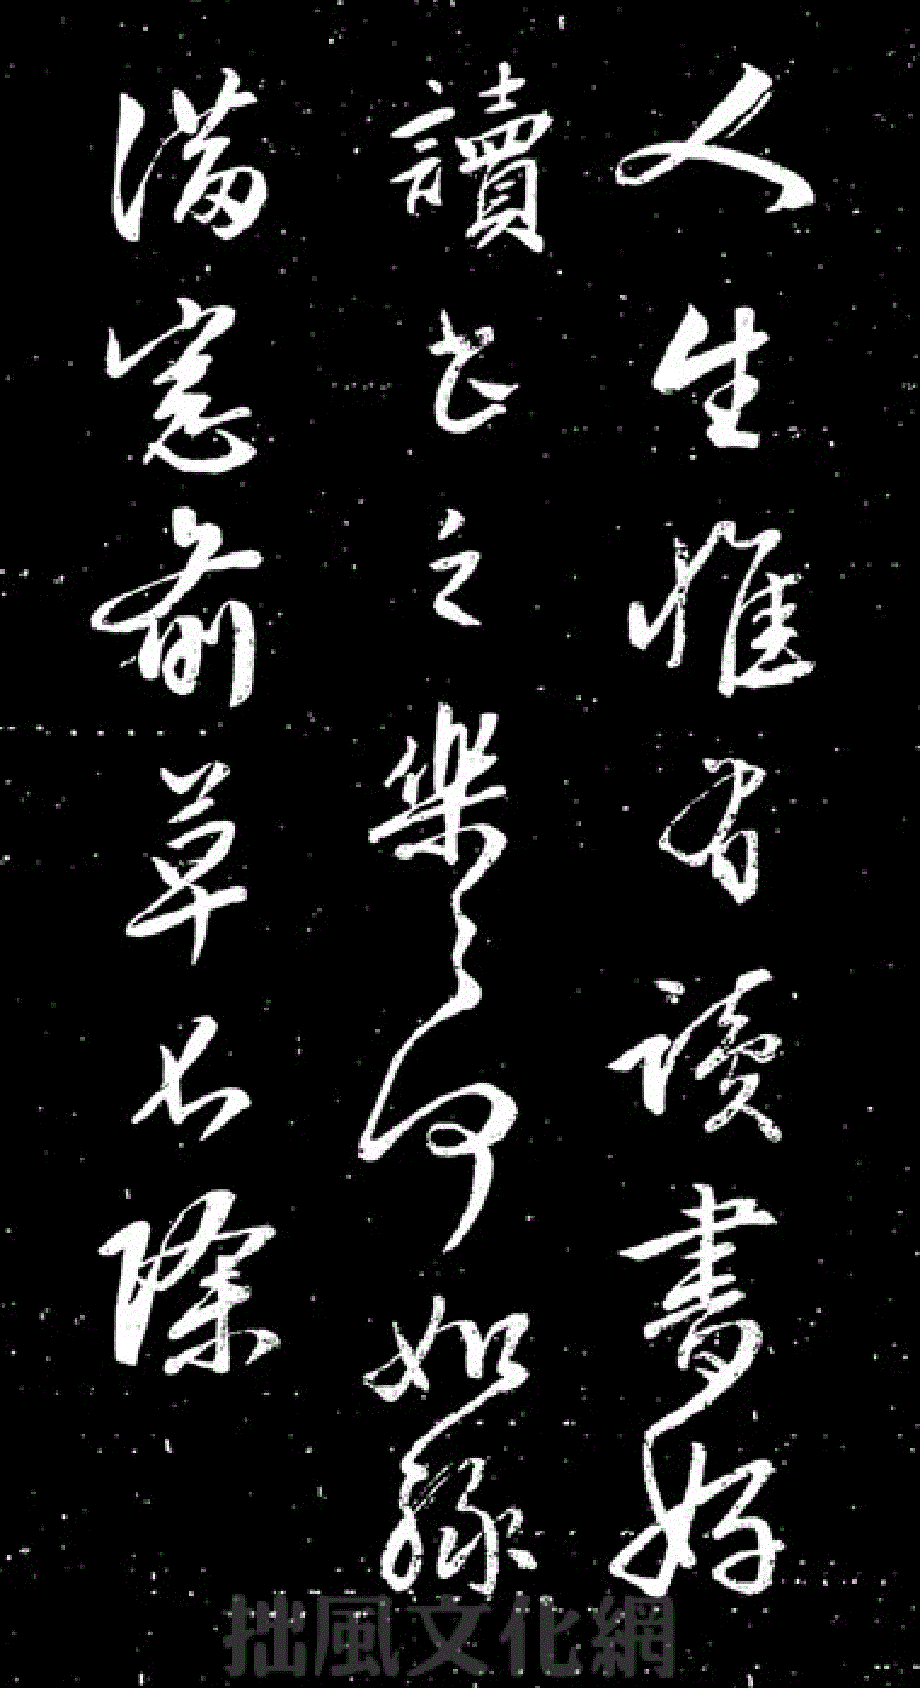 人生惟有讀書好
讀書之樂樂何如綠
滿窗前草不除
拙風文化網